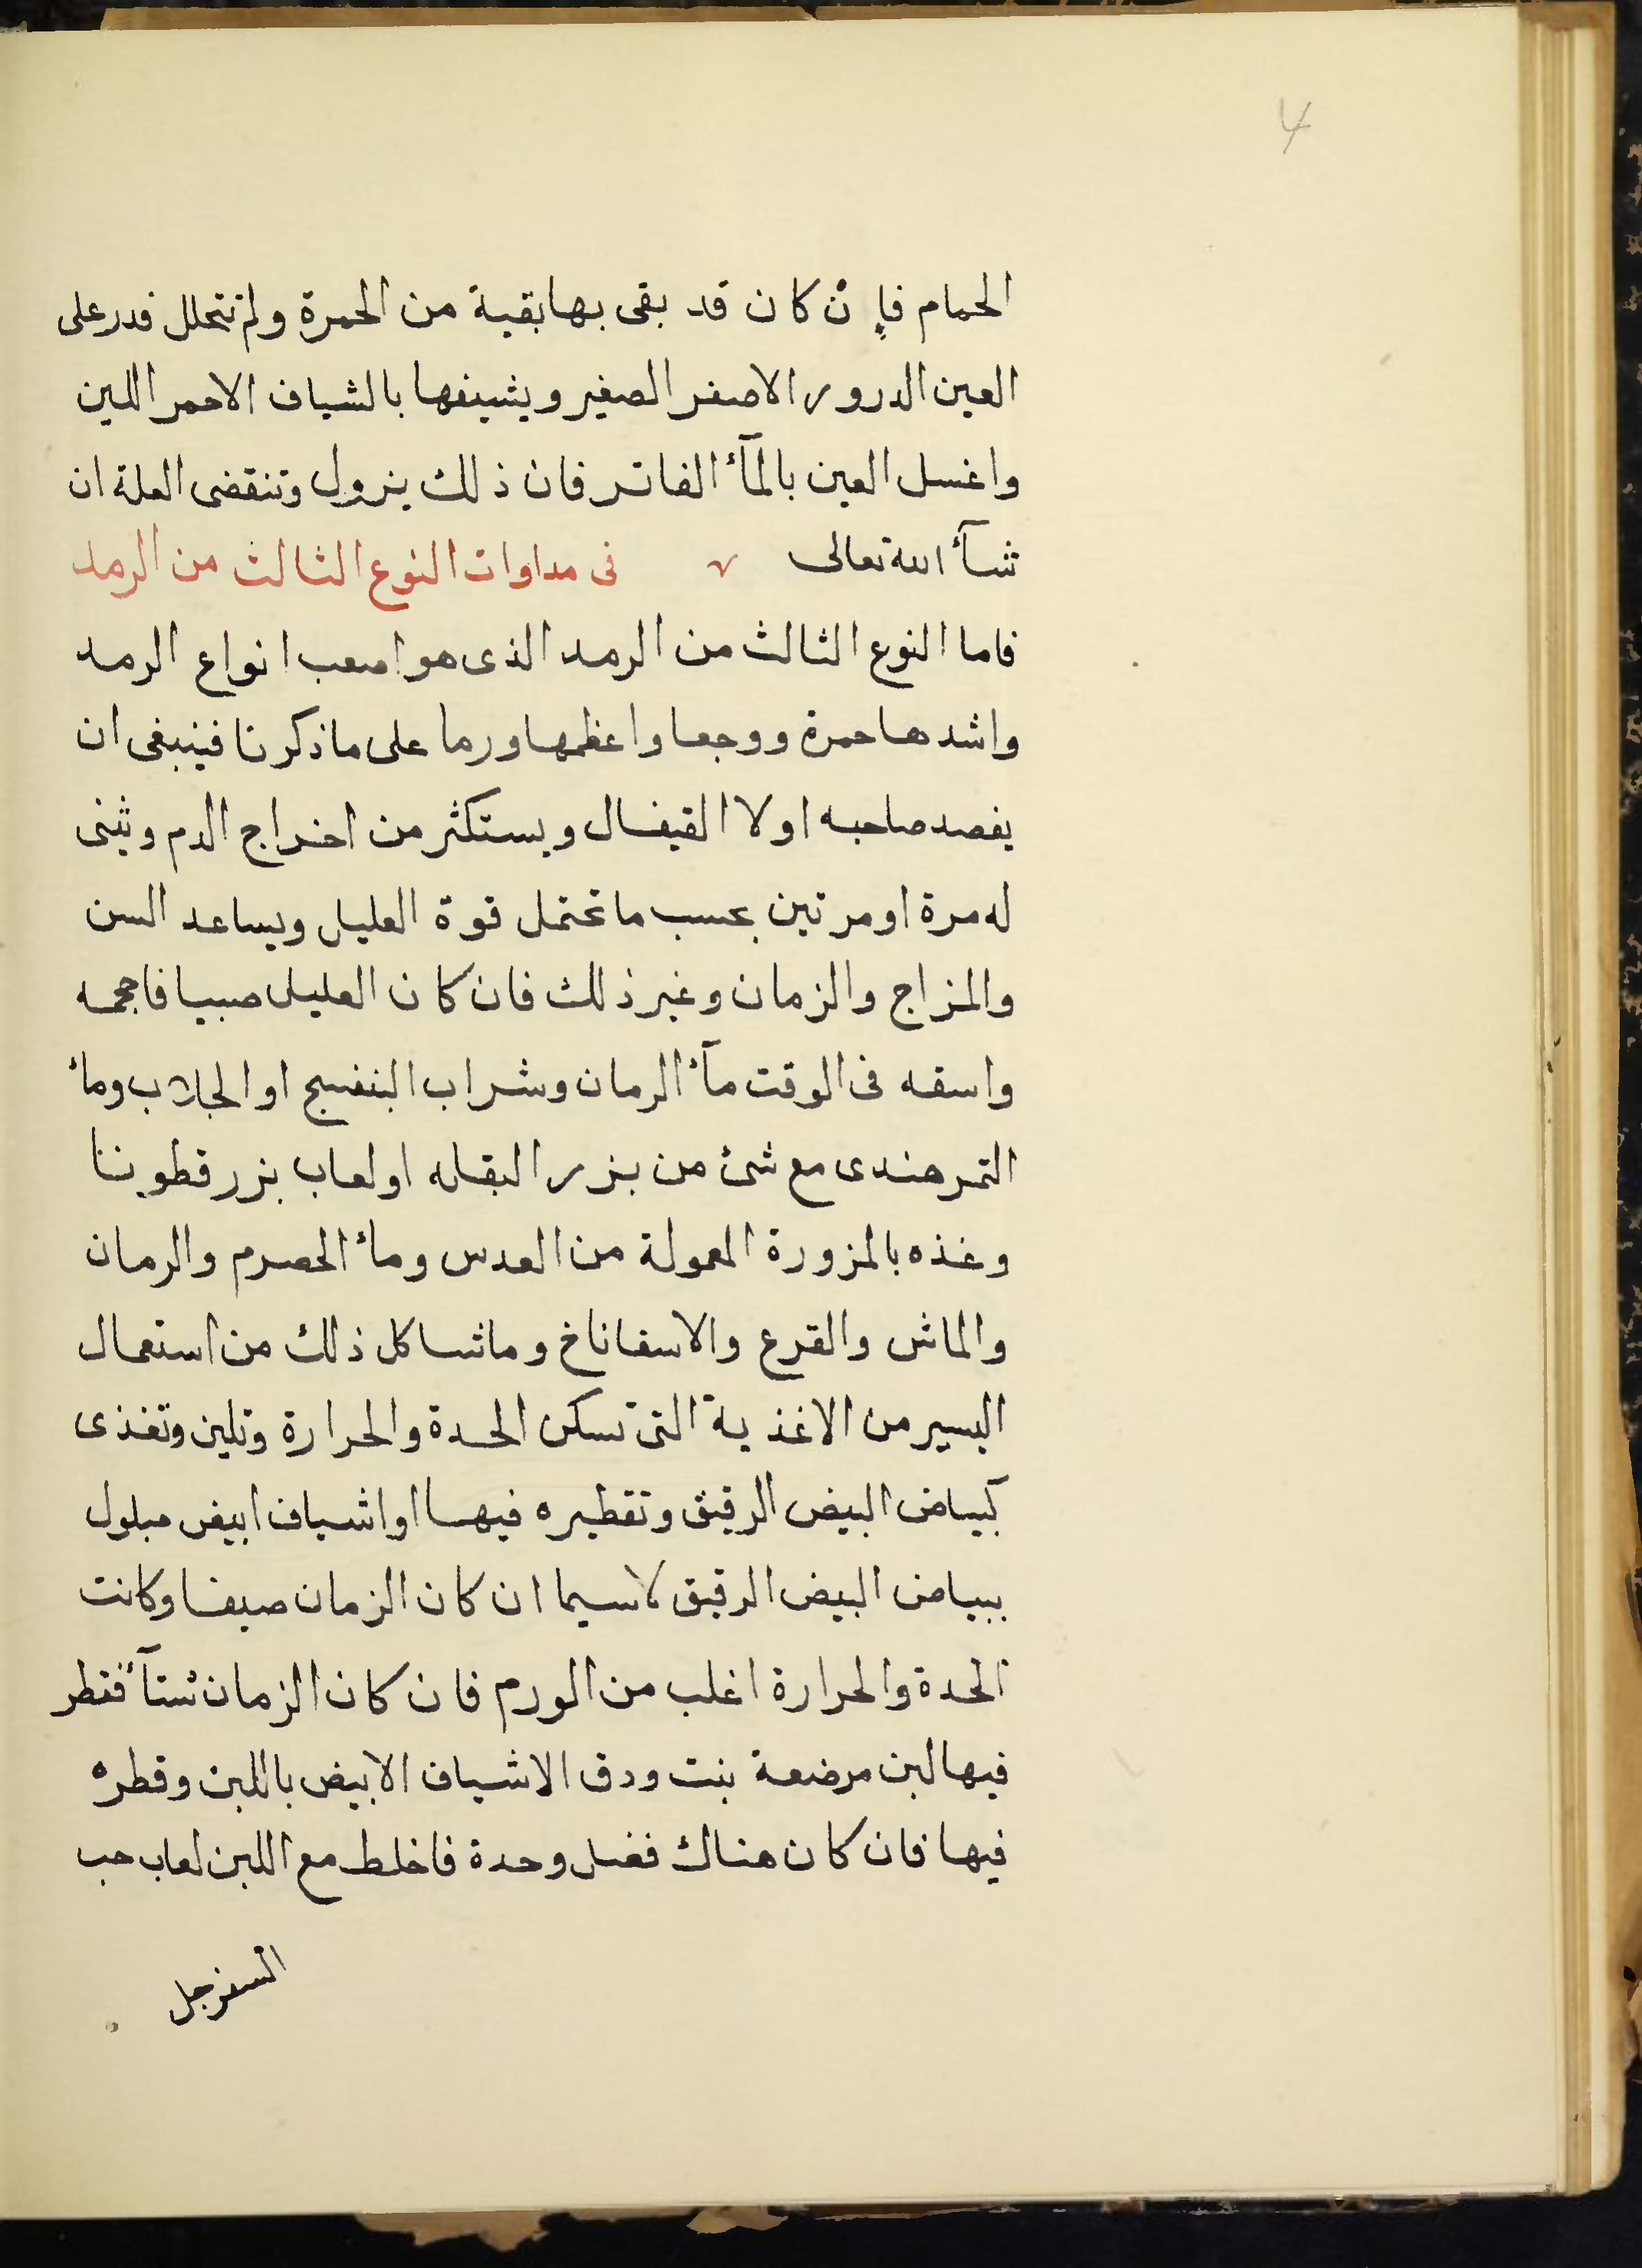 4
الحمام فإن كان قد بقى بها بقية من الحمرة ولم تتحلل فدر على
العين الدرور الاصفر الصغير ويشيفها بالشياف الاحمر اللين
واغسل العين بالمآء الفاتر فان ذلك يزول وتنقضى العلة ان
شآء الله تعالى في مداوات النوع الثالث من الرمد
فاما النوع الثالث من الرمد الذى هو اصعب انواع الرمد
واشدها حمرة ووجعا واعظمها ورما على ما ذكرنا فينبغى ان
يفصد صاحبه اولا القيفال ويستكثر من اخراج الدم ويثنى
له مرة او مرتين بحسب ما تحتمل قوة العليل ويساعد السن
والمزاج والزمان وغير ذلك فان كان العليل صبيا فاحجمه
واسقه فى الوقت مآء الرمان وشراب البنفسج او الجلاب وماء
التمر هندى مع شئ من بزر البقله او لعاب بزر قطوننا
وغذه بالمزورة المعمولة من العدس وماء الحصرم والرمان
والماش والقرع والاسفاناخ وما شاكل ذلك من استعمال
اليسير من الاغذية التى تسكن الحدة والحرارة وتلين وتغذى
كبياض البيض الرقيق وتقطيره فيها او اشياف ابيض مبلول
ببياض البيض الرقيق لاسيما ان كان الزمان صيفا وكانت
الحدة والحرارة اغلب من الورم فان كان الزمان شتآء فقطر
فيها لبن مرضعة بنت ودق الاشياف الابيض باللبن وقطره
فيها فان كان هناك فضل وحدة فاخلط مع اللبن لعاب حب
السفرجل